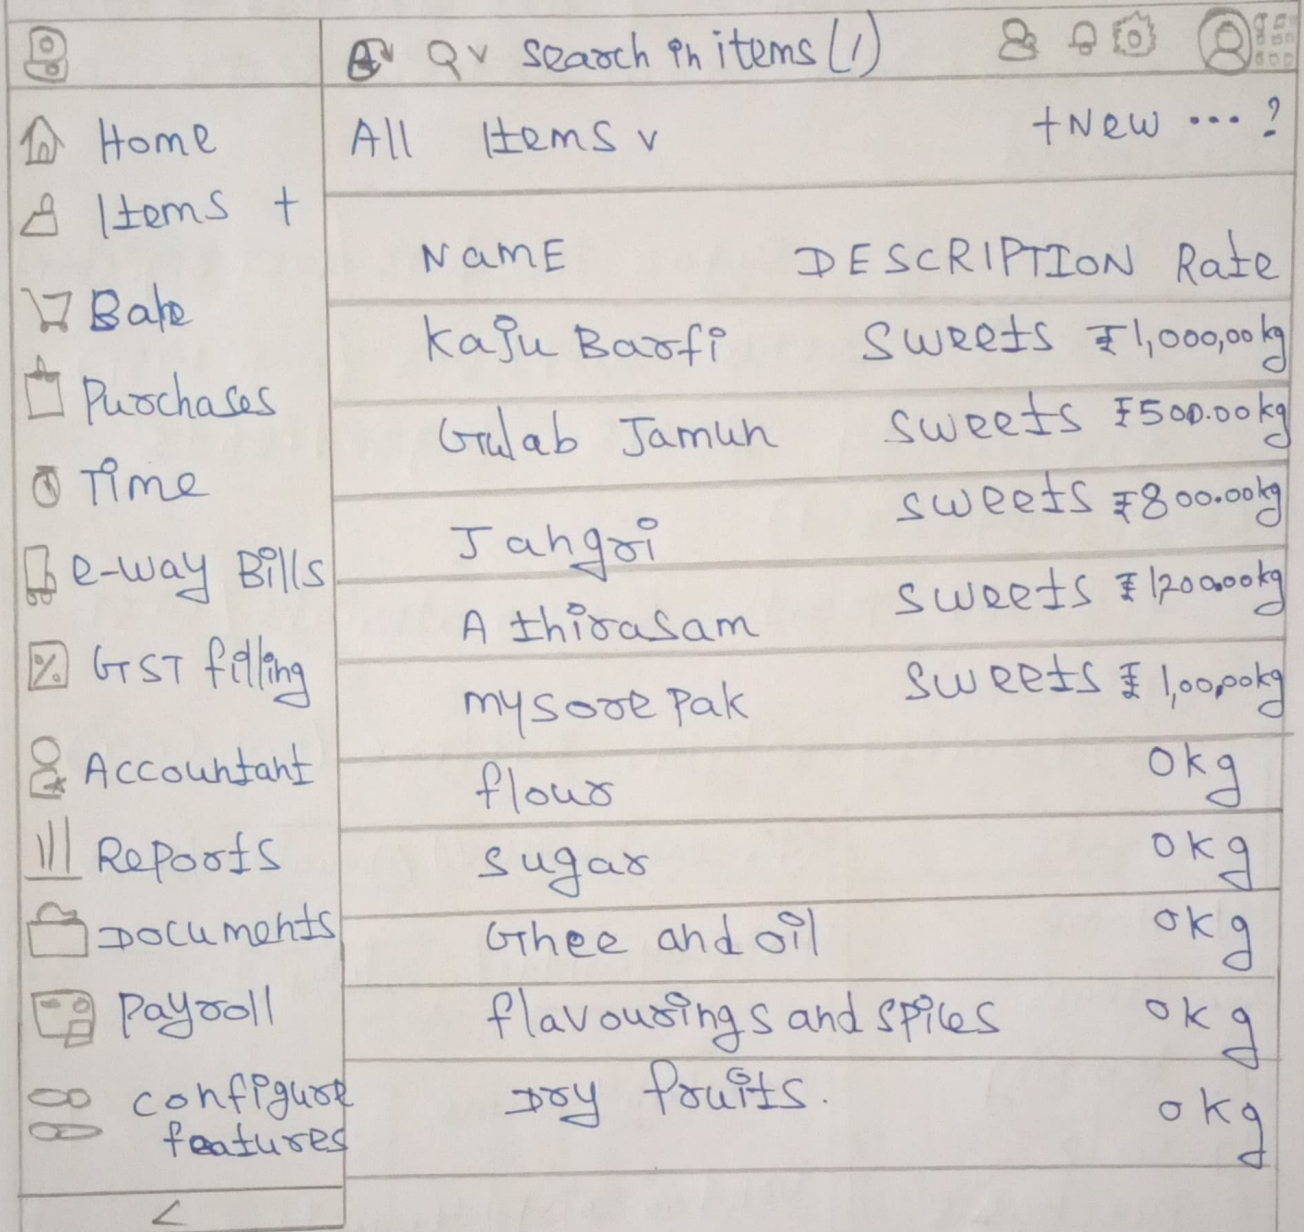 Search in items (/)
Home
Items +
Bake
Purchases
Time
e-way Bills
GST filling
Accountant
Reports
Documents
Payroll
configure
features
<
All Items v
+New ... ?
NAME DESCRIPTION Rate
Kaju Barfi Sweets ₹1,000,00kg
Gulab Jamun Sweets ₹500.00kg
Jahgri Sweets ₹800.00kg
Athirasam Sweets ₹1200.00kg
mysore Pak Sweets ₹1,00,00kg
flour 0kg
sugar 0kg
Ghee and oil 0kg
flavourings and spices 0kg
Dry fruits. 0kg